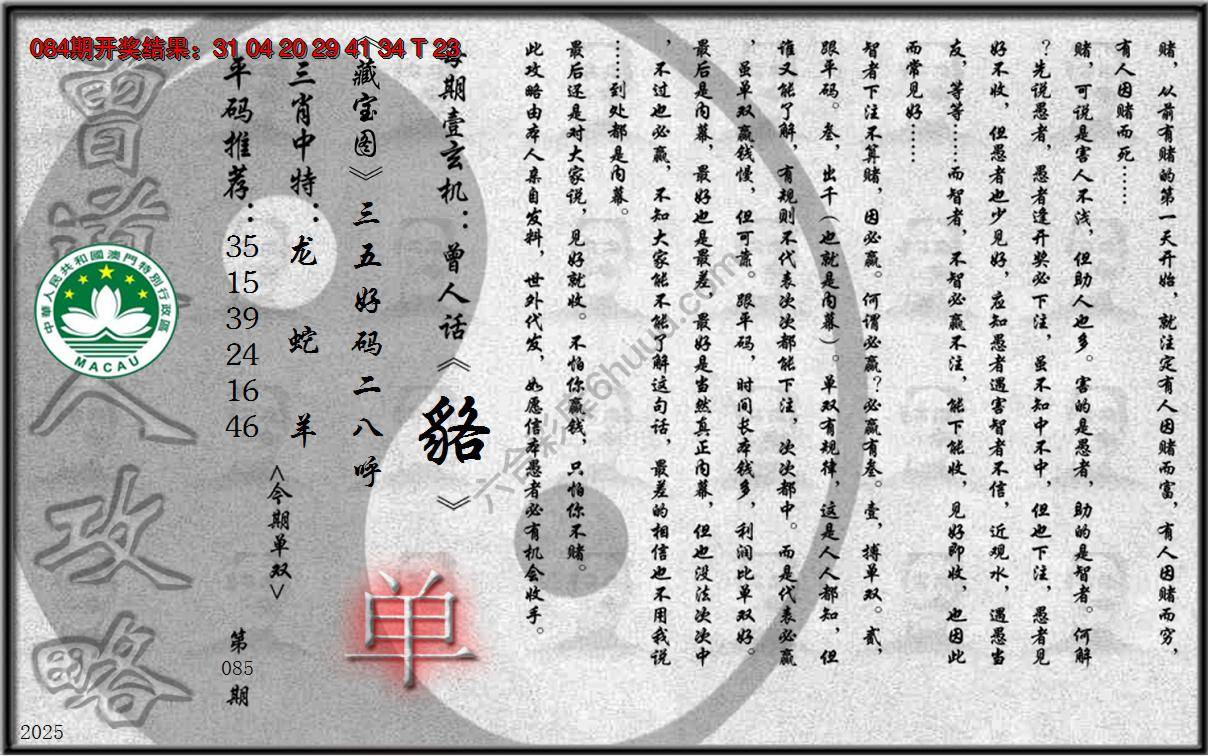 084期开奖结果：31 04 20 29 41 34 T 23
赌，从前有赌的第一天开始，就注定有人因赌而富，有人因赌而穷，
有人因赌而死……
赌，可说是害人不浅，但助人也多。害的是愚者，助的是智者。何解
？先说愚者，愚者逢开奖必下注，虽不知中不中，但也下注，愚者见
好不收，但愚者也少见好，应知愚者遇害智者不信，近观水，遇愚当
友，等等……而智者，不智必赢不注，能下能收，见好即收，也因此
而常见好……
智者下注不算赌，因必赢。何谓必赢？必赢有叁。壹，搏单双。贰，
跟平码。叁，出千（也就是内幕）。单双有规律，这是人人都知，但
谁又能了解，有规则不代表次次都能下注，次次都中。而是代表必赢
，虽单双赢钱慢，但可靠。跟平码，时间长本钱多，利润比单双好。
最后是内幕，最好也是最差，最好是当然真正内幕，但也没法次次中
，不过也必赢，不知大家能不能了解这句话，最差的相信也不用我说
……到处都是内幕。
最后还是对大家说，见好就收。不怕你赢钱，只怕你不赌。
此攻略由本人亲自发料，世外代发，如愿信本愚者必有机会收手。
每期壹玄机：曾人话《貉》
《藏宝图》三五好码二八呼
三肖中特：龙 蛇 羊
平码推荐：35 15 39 24 16 46
<今期单双>
单
第085期
曾道人攻略
中華人民共和國澳門特別行政區
MACAU
六合彩库6huuu.com
2025